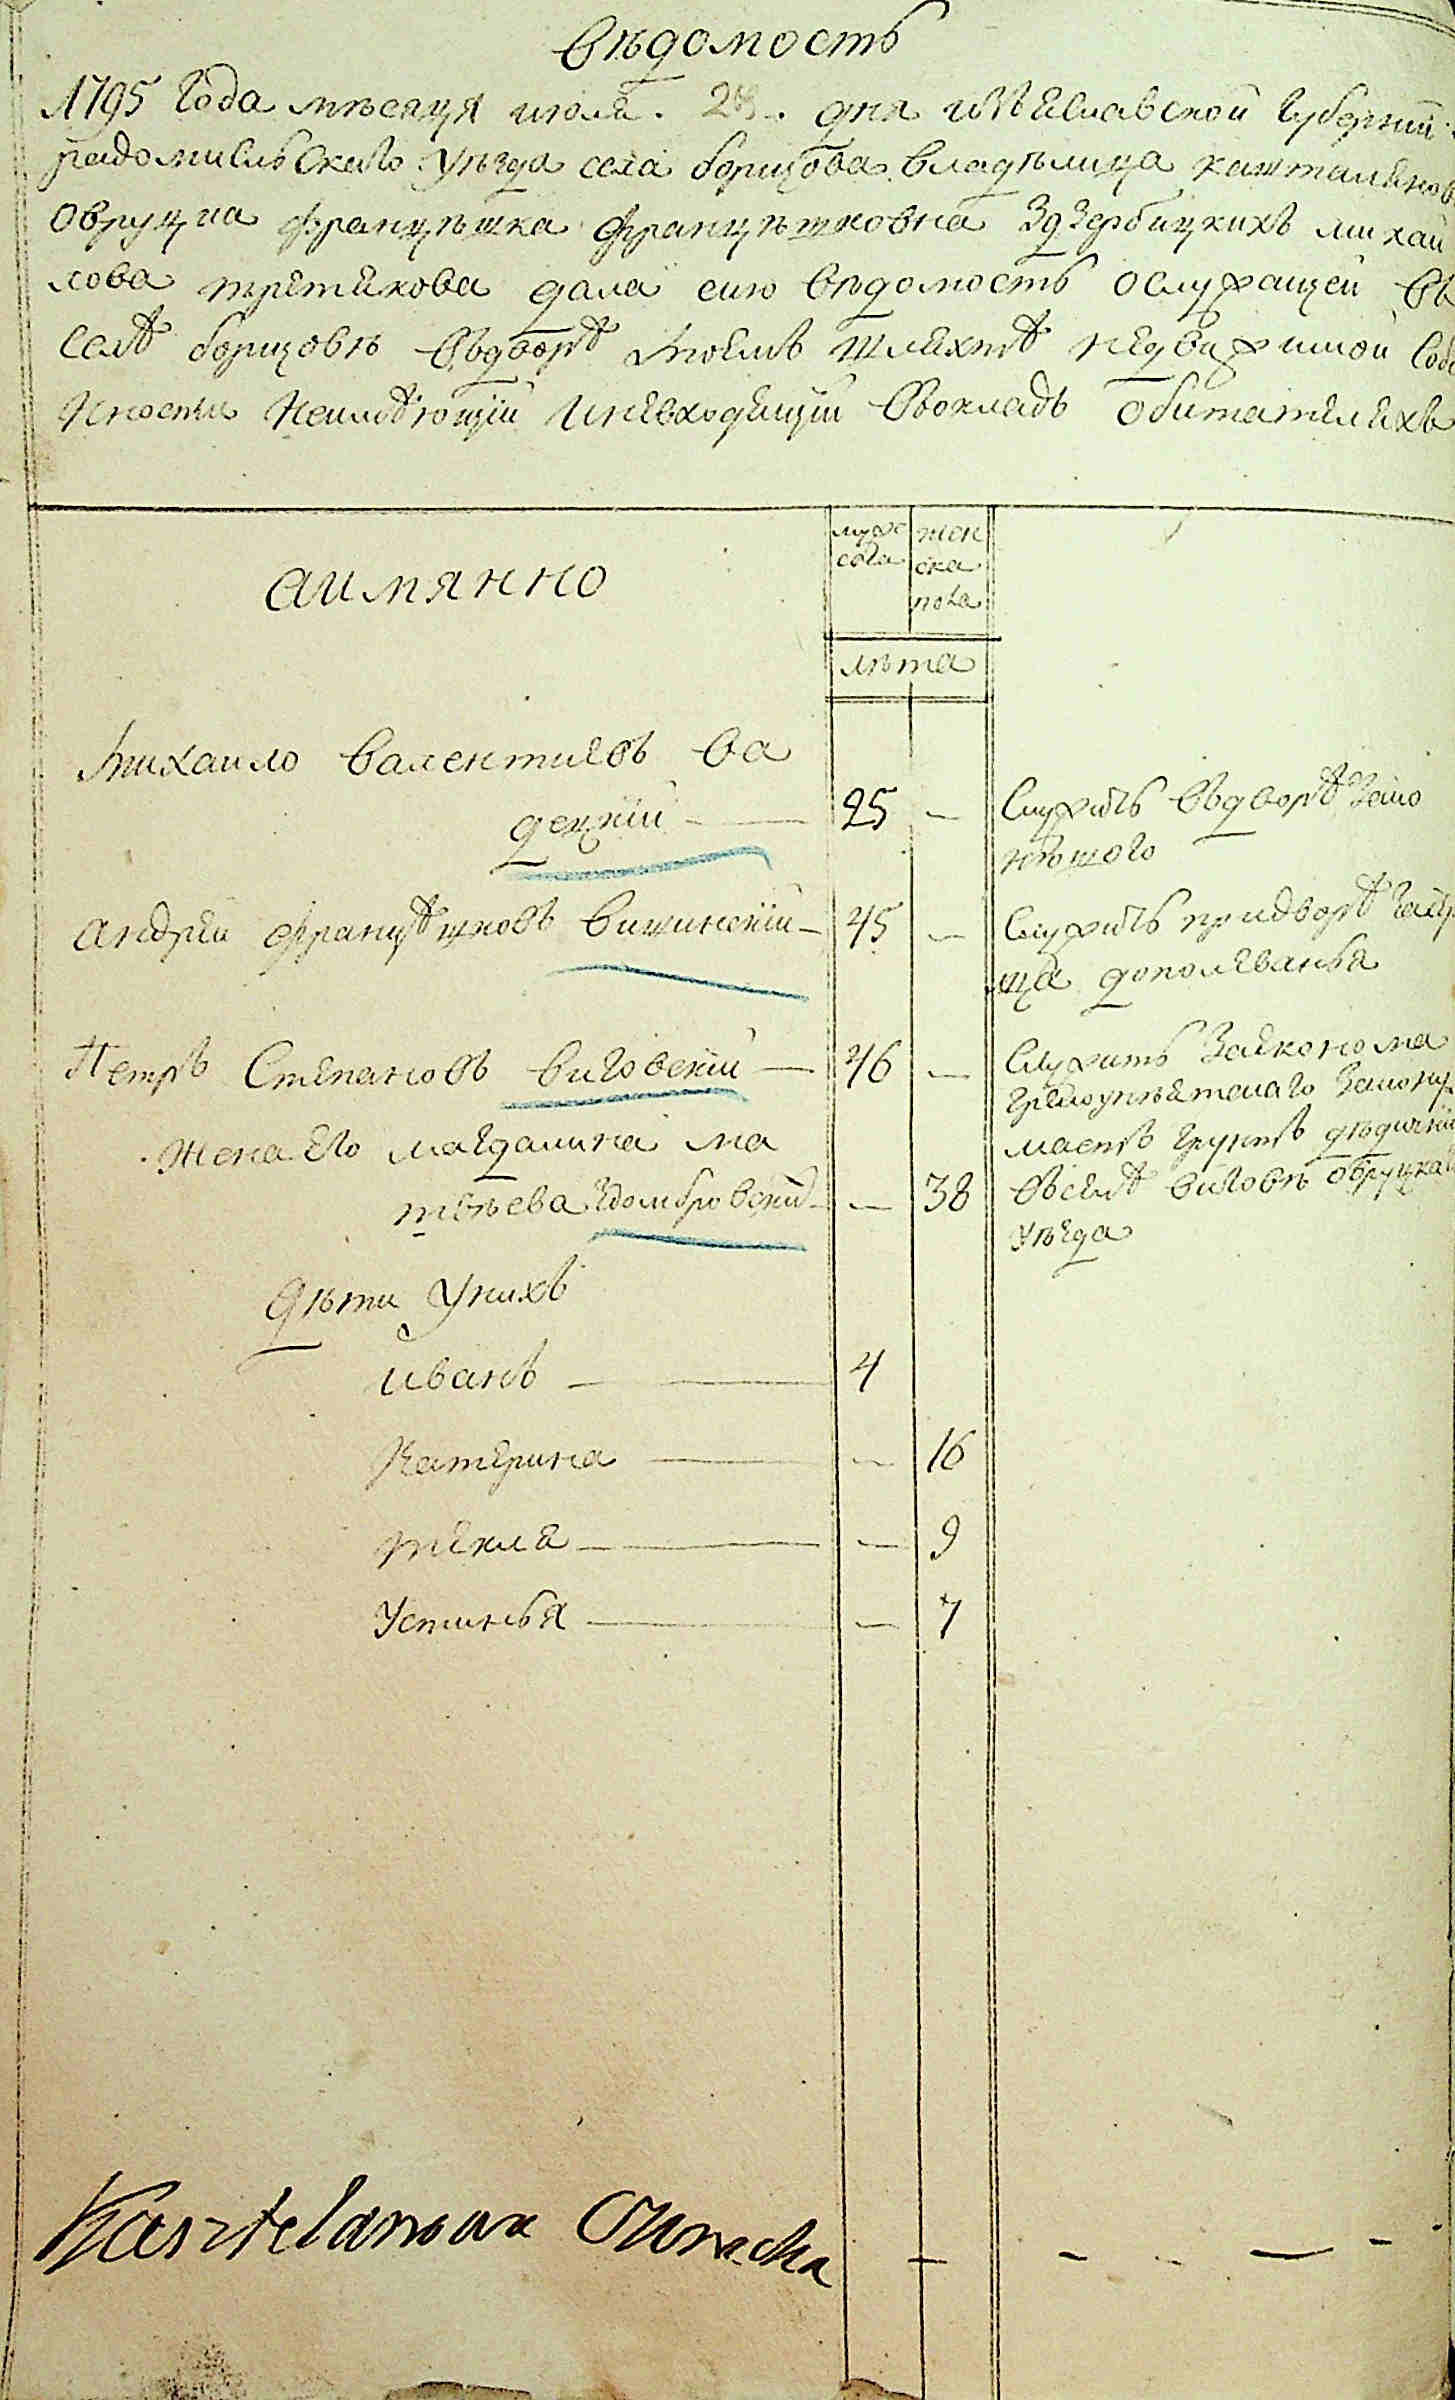 Вѣдомость
1795 Года мѣсяця июля. 28. дня изъяславской Губерний
радомисльскаго уѣзда села борщова владѣлица каштелянов
овруцка францѣшка францѣшковна Здзербицкихъ михаи
лова третякова дала сию вѣдомость ослужащей въ
селѣ борщовѣ въдворѣ моемъ шляхтѣ недвижимой собс
нности неимѣющій иневходящій вокладъ обитателяхъ
аимянно
мужс
ска
жен
ска
пола
лѣта
Михаило валентиевъ ва
децкій — 25 — Служитъ въдворѣ
Андрей францѣшковъ вишинскій — 45 — Служитъ придворѣ
дополеванья
Петръ Степановъ виговскій — 46 — Служитъ Заяконома
Жена Его магдалина ма
маетъ грунтъ дѣдичній
твѣева Здомбровскій — — 38 всемѣ виговѣ овруцкаго
уѣзда
дѣти унихъ
иванъ — 4
Катерина — — 16
текля — — 9
Устинья — — 7
Kasztelanowa Owrucka